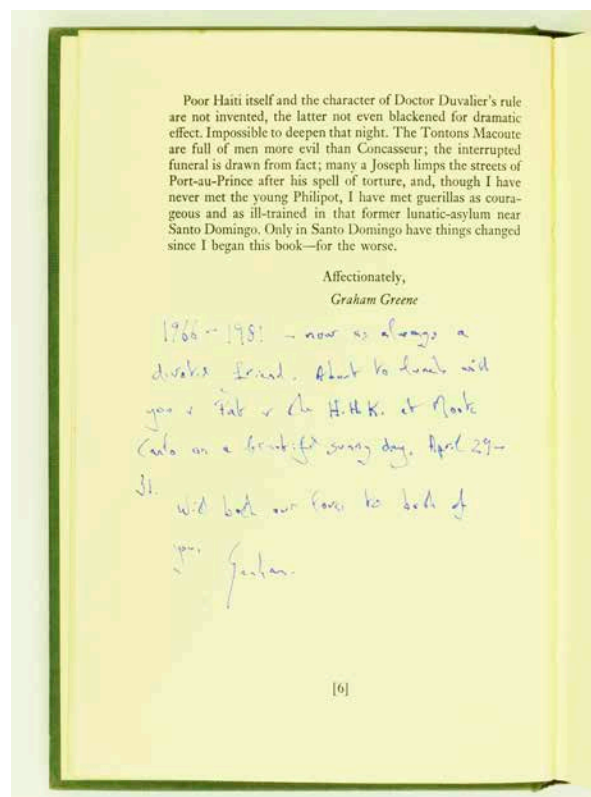 Poor Haiti itself and the character of Doctor Duvalier's rule
are not invented, the latter not even blackened for dramatic
effect. Impossible to deepen that night. The Tontons Macoute
are full of men more evil than Concasseur; the interrupted
funeral is drawn from fact; many a Joseph limps the streets of
Port-au-Prince after his spell of torture, and, though I have
never met the young Philipot, I have met guerillas as coura-
geous and as ill-trained in that former lunatic-asylum near
Santo Domingo. Only in Santo Domingo have things changed
since I began this book—for the worse.
Affectionately,
Graham Greene
1966 – 1981 – now as always a
devoted friend. About to lunch with
you & Pat & the H.H.K. at Monte
Carlo on a beautiful sunny day. April 29–
81.
With both our loves to both of
you.
Graham.
[6]